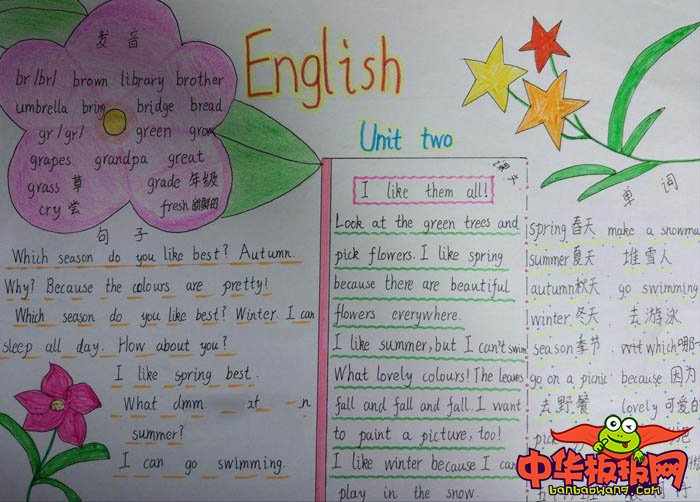 发音
br/br/ brown library brother
umbrella bring bridge bread
gr/gr/ green grow
grapes grandpa great
grass 草 grade 年级
cry 尝 fresh 新鲜的
English
Unit two
句子
Which season do you like best? Autumn.
Why? Because the colours are pretty!
Which season do you like best? Winter. I can
sleep all day. How about you?
I like spring best.
What
summer?
I can go swimming.
课文
I like them all!
Look at the green trees and
pick flowers. I like spring
because there are beautiful
flowers everywhere.
I like summer, but I can't swim
What lovely colours! The leaves
fall and fall and fall. I want
to paint a picture, too!
I like winter because I can
play in the snow.
单词
spring 春天 make a snowma
summer 夏天 堆雪人
autumn 秋天 go swimming
winter 冬天 去游泳
season 季节 which 哪一
go on a picnic because 因为
去野餐 lovely 可爱的
pick
中华板报网
banbaowang.com